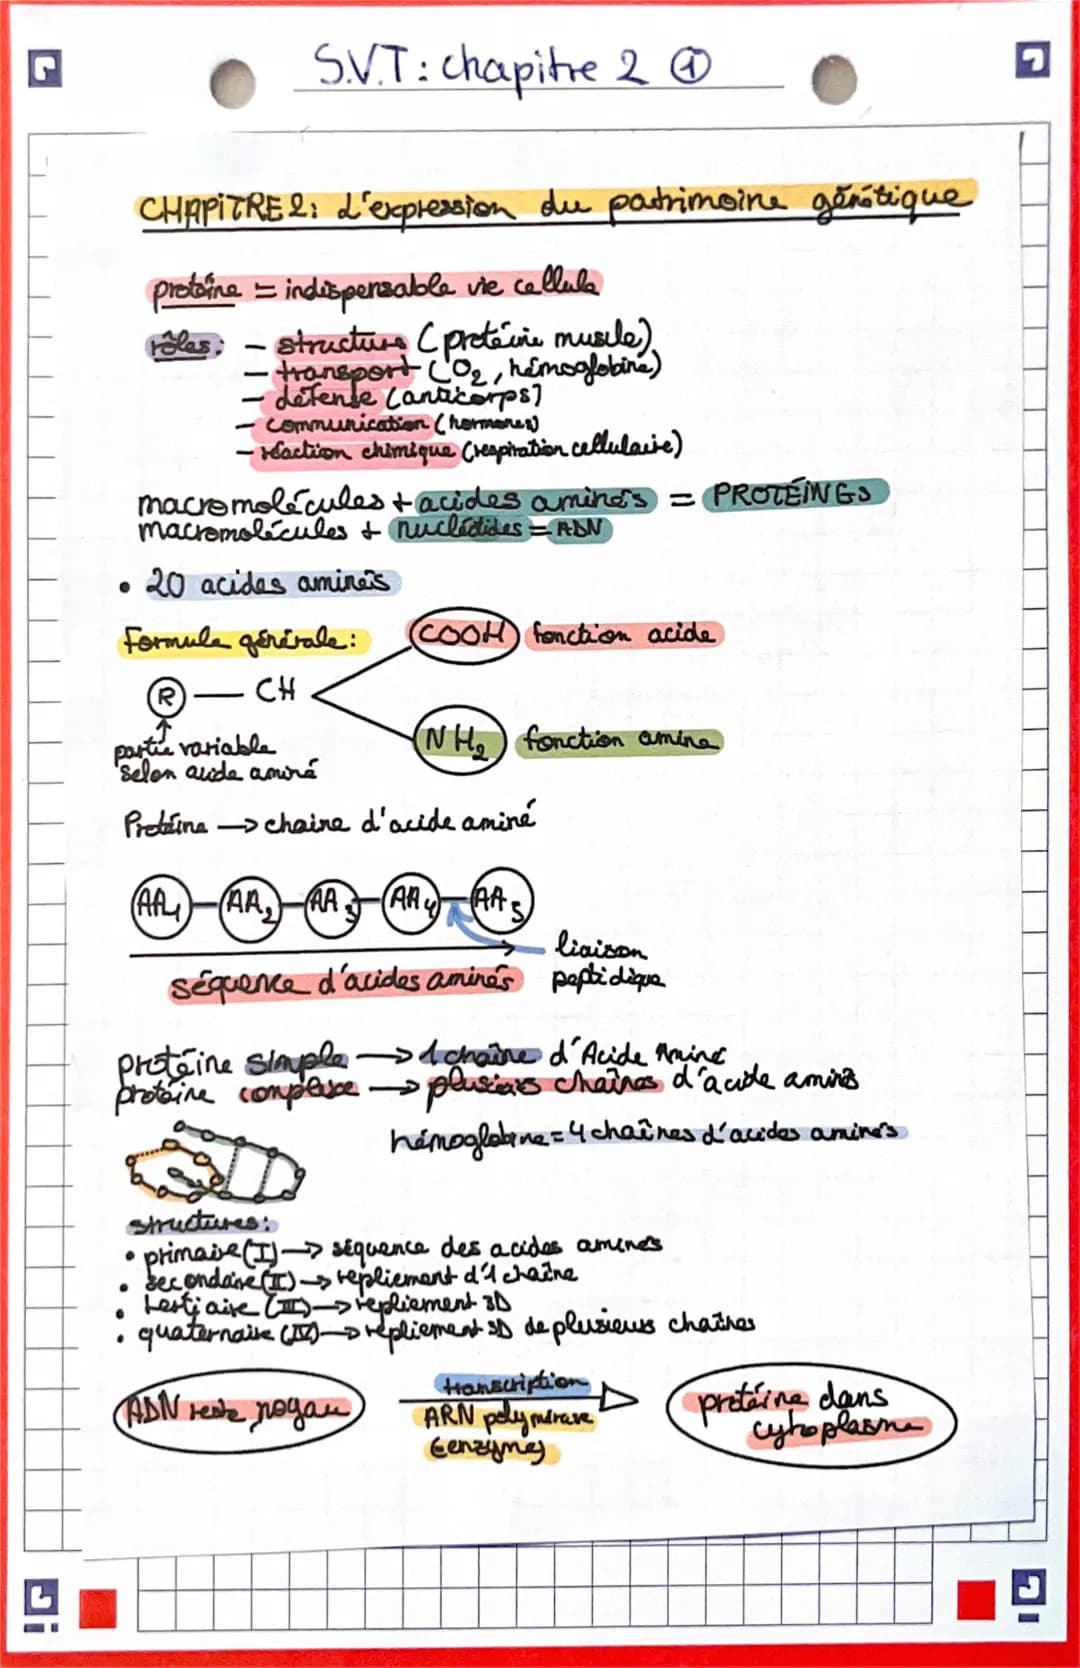 S.V.T : chapitre 2 ①
CHAPITRE 2 : L'expression du patrimoine génétique
protéine = indispensable vie cellule
rôles : - structure (protéine muscle)
- transport (O2, hémoglobine)
- défense (anticorps)
- communication (hormones)
- réaction chimique (respiration cellulaire)
macromolécules + acides aminés = PROTÉINES
macromolécules + nucléotides = ADN
• 20 acides aminés
Formule générale :
COOH fonction acide
R — CH
NH2 fonction amine
partie variable
selon acide aminé
Protéine → chaine d'acide aminé
AA1 - AA2 - AA3 - AA4 - AA5
liaison
peptidique
séquence d'acides aminés
protéine simple → 1 chaîne d'Acide Aminé
protéine complexe → plusieurs chaînes d'acide aminés
hémoglobine = 4 chaînes d'acides aminés
structures :
• primaire (I) → séquence des acides aminés
• secondaire (II) → repliement d'1 chaîne
• tertiaire (III) → repliement 3D
• quaternaire (IV) → repliement 3D de plusieurs chaînes
ADN reste noyau
transcription
ARN polymérase
(enzyme)
protéine dans
cytoplasme